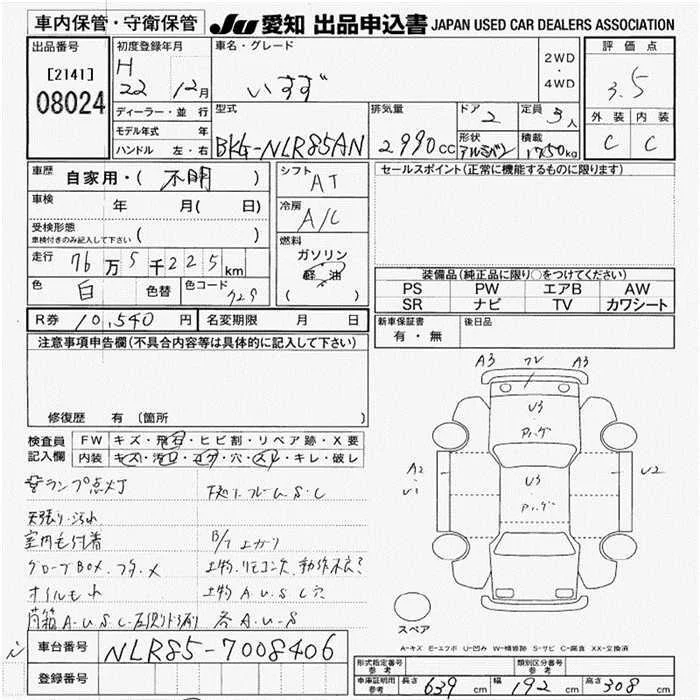 車内保管・守衛保管 JU 愛知 出品申込書 JAPAN USED CAR DEALERS ASSOCIATION
出品番号
[2141]
08024
初度登録年月
H
22 12月
ディーラー・並 行
モデル年式 年
ハンドル 左・右
車名・グレード
いすず
2WD
・
4WD
評 価 点
3.5
外 装 内 装
C C
型式
BKG-NLR85AN
排気量
2990cc
ドア 2
定員 3人
形状 アルミバン
積載 1750kg
車歴
自家用・( 不明 )
車検
年 月( 日)
受検形態
車検付きのみ記入して下さい ( )
走行 76万5千225km
色 白 色替 色コード 729
シフト AT
冷房 A/C
燃料
ガソリン
軽 油
( )
セールスポイント(正常に機能するものに限ります)
装備品(純正品に限り○をつけてください)
PS PW エアB AW
SR ナビ TV カワシート
R券 10,540 円 名変期限 月 日
新車保証書
有・無
後日品
注意事項申告欄(不具合内容等は具体的に記入して下さい)
修復歴 有(箇所 )
検査員
記入欄
FW キズ・飛石・ヒビ割・リペア跡・X 要
内装 キズ・汚レ・コゲ・穴・スレ・キレ・破レ
ランプ点灯
天張り汚れ
室内
グローブBOX.フタ.×
オイルもれ
荷箱 A.U.S.C
下廻りフレームS.C
上物.リモコン欠.動作不良?
上物 A.U.S 穴
各 A.U.S
A3 A3
U3
U3
A2
U1
U2
スペア
A-キズ E-エクボ U-凹み W-補修跡 S-サビ C-腐食 XX-交換済
車台番号 NLR85-7008406
登録番号
形式指定番号
参 考
類別区分番号
参 考
車庫証明用
参考
長さ 639 cm 幅 192 cm 高さ 308 cm